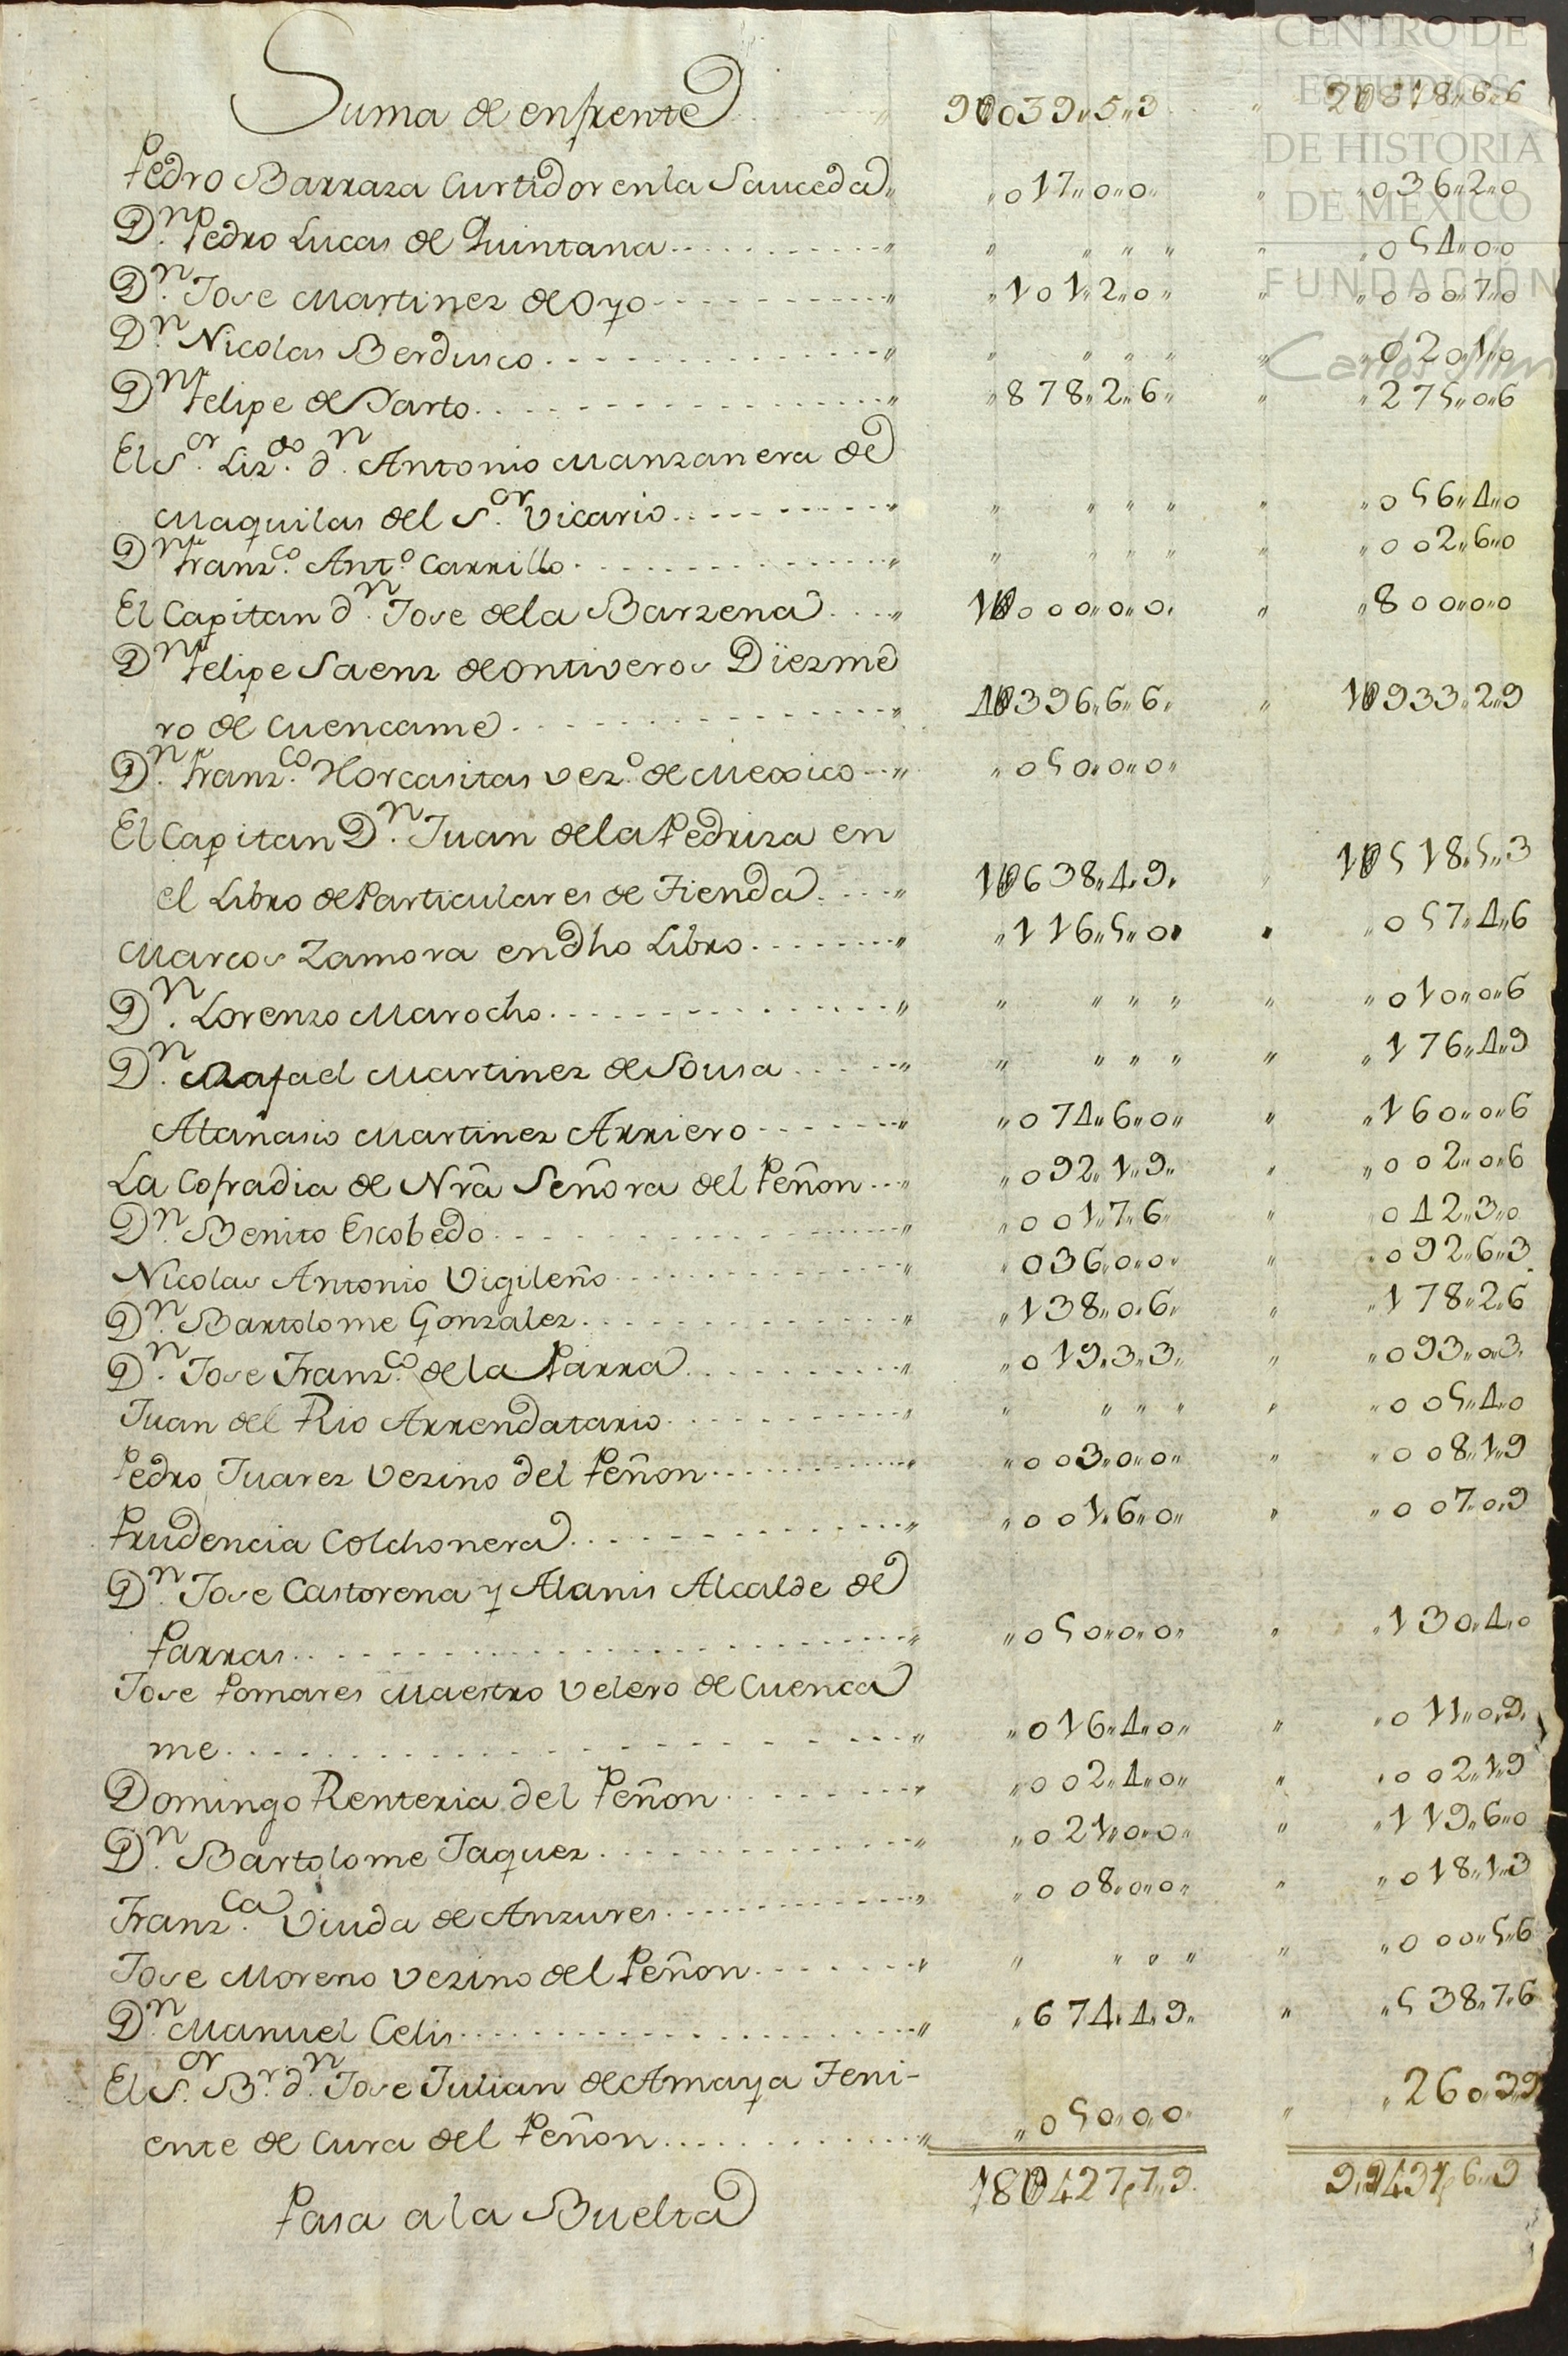 Suma de enfrente 9U039,,5,,3 ,, 2U318,,6,,6
Pedro Barraza Curtidor en la Sauceda ,, ,,017,,0,,0,, ,, ,,036,,2,,0
Dn. Pedro Lucas de Quintana ,, ,, ,, ,, ,, ,, ,,054,,0,,0
Dn. Jose Martinez de Oyo ,, ,,101,,2,,0,, ,, ,,000,,7,,0
Dn. Nicolas Berdusco ,, ,, ,, ,, ,, ,, ,,020,,1,,0
Dn. Felipe de Sarto ,, ,,878,,2,,6,, ,, ,,275,,0,,6
El Sor. Lizdo. dn. Antonio Manzanera de
Maquilas del Sor. Vicario ,, ,, ,, ,, ,, ,, ,,056,,4,,0
Dn. Franzco. Anto. Carrillo ,, ,, ,, ,, ,, ,, ,,002,,6,,0
El Capitan dn. Jose de la Barzena ,, 1U000,,0,,0,, ,, ,,800,,0,,0
Dn. Felipe Saenz de Ontiveros Diezme
ro de Cuencame ,, 1U396,,6,,6,, ,, 1U933,,2,,9
Dn. Franzco. Horcasitas vezo. de Mexico ,, ,,050,,0,,0,,
El Capitan Dn. Juan de la Pedriza en
el Libro de Particulares de Tienda ,, 1U638,,4,,9,, ,, 1U518,,5,,3
Marcos Zamora en dho Libro ,, ,,116,,5,,0,, ,, ,,057,,4,,6
Dn. Lorenzo Marocho ,, ,, ,, ,, ,, ,, ,,010,,0,,6
Dn. Rafael Martinez de Sousa ,, ,, ,, ,, ,, ,, ,,176,,4,,9
Atanasio Martinez Arriero ,, ,,074,,6,,0,, ,, ,,160,,0,,6
La Cofradia de Nrã Señora del Peñon ,, ,,092,,1,,9,, ,, ,,002,,0,,6
Dn. Benito Escobedo ,, ,,001,,7,,6,, ,, 042,,3,,0
Nicolas Antonio Vigileño ,, ,,036,,0,,0,, ,, ,,092,,6,,3
Dn. Bartolome Gonzalez ,, ,,138,,0,,6,, ,, ,,178,,2,,6
Dn. Jose Franzco. de la Parra ,, ,,019,,3,,3,, ,, ,,093,,0,,3
Juan del Rio Arrendatario ,, ,, ,, ,, ,, ,, ,,005,,4,,0
Pedro Juarez Vezino del Peñon ,, ,,003,,0,,0,, ,, ,,008,,1,,9
Prudencia Colchonera ,, ,,001,,6,,0,, ,, ,,007,,0,,9
Dn. Jose Castorena y Alanis Alcalde de
Parras ,, ,,050,,0,,0,, ,, ,,130,,4,,0
Jose Pomares Maestro Velero de Cuenca
me ,, ,,016,,4,,0,, ,, ,,011,,0,,9
Domingo Renteria del Peñon ,, ,,002,,4,,0,, ,, ,,002,,1,,9
Dn. Bartolome Jaquez ,, ,,021,,0,,0,, ,, ,,119,,6,,0
Franzca. Viuda de Anzures ,, ,,008,,0,,0,, ,, ,,018,,1,,3
Jose Moreno vezino del Peñon ,, ,, ,, ,, ,, ,, ,,000,,5,,6
Dn. Manuel Celis ,, ,,674,,4,,9,, ,, ,,538,,7,,6
El Sor. Br. dn. Jose Julian de Amaya Teni-
ente de Cura del Peñon ,, ,,050,,0,,0 ,, ,,260,,3,,9
18U427,,7,,9 9U437,,6,,9
Pasa a la Buelta
CENTRO DE
ESTUDIOS
DE HISTORIA
DE MEXICO
FUNDACIÓN
Carlos Slim